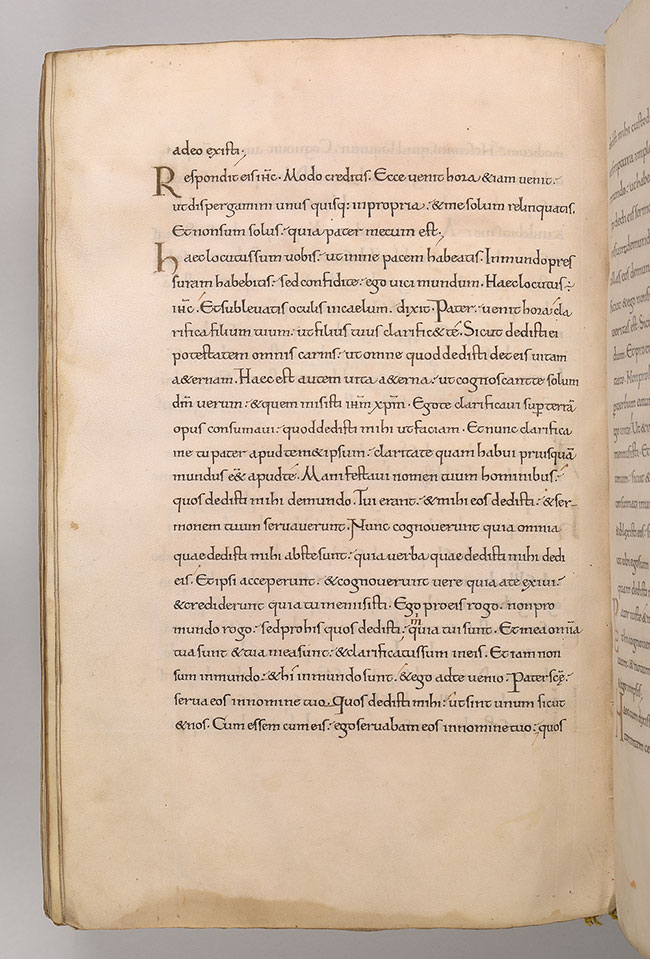 adeo existi.
Respondit eis ihc. Modo creditis. Ecce venit hora & iam venit.
ut dispergamini unus quisq; in propria. & me solum relinquatis.
Et non sum solus. quia pater mecum est.
haec locutus sum vobis. ut in me pacem habeatis. In mundo pres
suram habebitis. sed confidite. ego vici mundum. Haec locutus.
ihc. Et sublevatis oculis in caelum. dixit. Pater. venit hora. cla
rifica filium tuum. ut filius tuus clarific& te. Sicut dedisti ei
potestatem omnis carnis. ut omne quod dedisti det eis vitam
a&ernam. Haec est autem vita a&erna. ut cognoscant te solum
dm verum. & quem misisti ihm xpm. Ego te clarificavi sup terrā
opus consumavi. quod dedisti mihi ut faciam. Et nunc clarifica
me tu pater apud tem&ipsum. claritate quam habui priusquā
mundus e&̄ apud te. Manifestavi nomen tuum hominibus.
quos dedisti mihi de mundo. Tui erant. & mihi eos dedisti. & ser-
monem tuum servaverunt. Nunc cognoverunt quia omnia
quae dedisti mihi abs te sunt. quia verba quae dedisti mihi dedi
eis. Et ipsi acceperunt. & cognoverunt vere quia a te exivi.
& crediderunt quia tu me misisti. Ego pro eis rogo. non pro
mundo rogo. sed pro his quos dedisti m quia tui sunt. Et mea omīa
tua sunt & tua mea sunt. & clarificatus sum in eis. Et iam non
sum in mundo. & hi in mundo sunt. & ego ad te venio. Pater scē.
serva eos in nomine tuo. Quos dedisti mihi. ut sint unum sicut
& nos. Cum essem cum eis. ego servabam eos in nomine tuo. quos